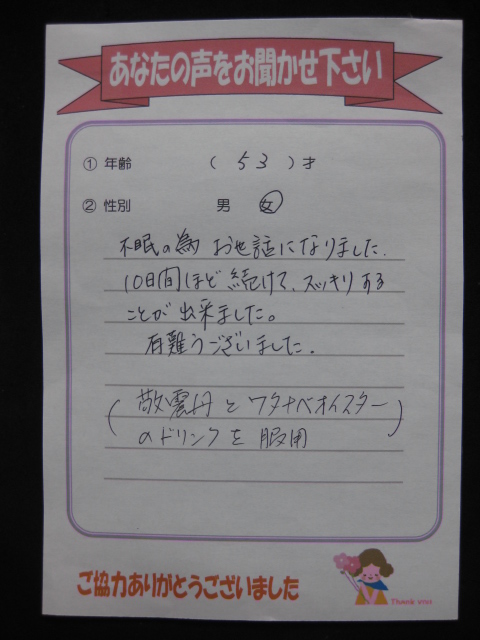 あなたの声をお聞かせ下さい
① 年齢 ( 53 ) 才
② 性別 男 女
不眠の為 お世話になりました.
10日間ほど 続けて、スッキリする
ことが 出来ました。
有難うございました.
(敬震丹 と ワタナベオイスター
のドリンクを 服用)
ご協力ありがとうございました
Thank you